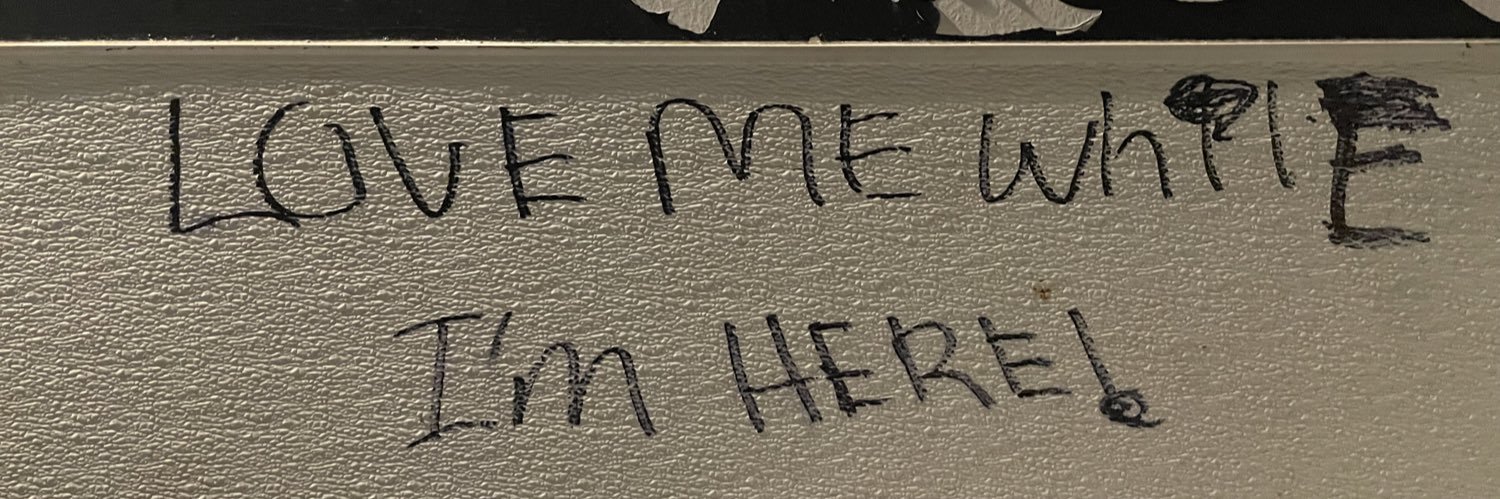 LOVE ME WhilE
I'm HERE!